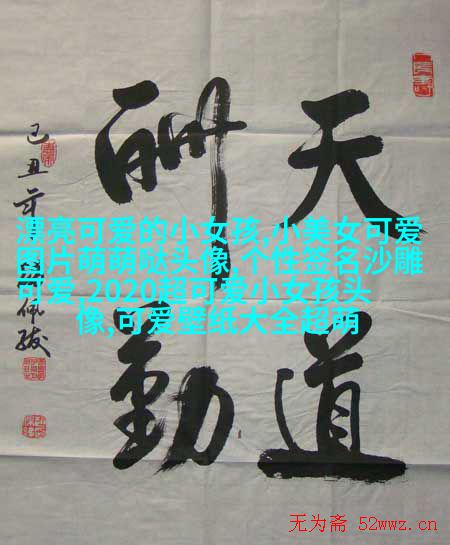 天道
酬勤
己丑
漂亮可爱的小女孩,小美女可爱
图片萌萌哒头像,个性签名沙雕
可爱,2020超可爱小女孩头
像,可爱壁纸大全超萌
无为斋 52wwz.cn